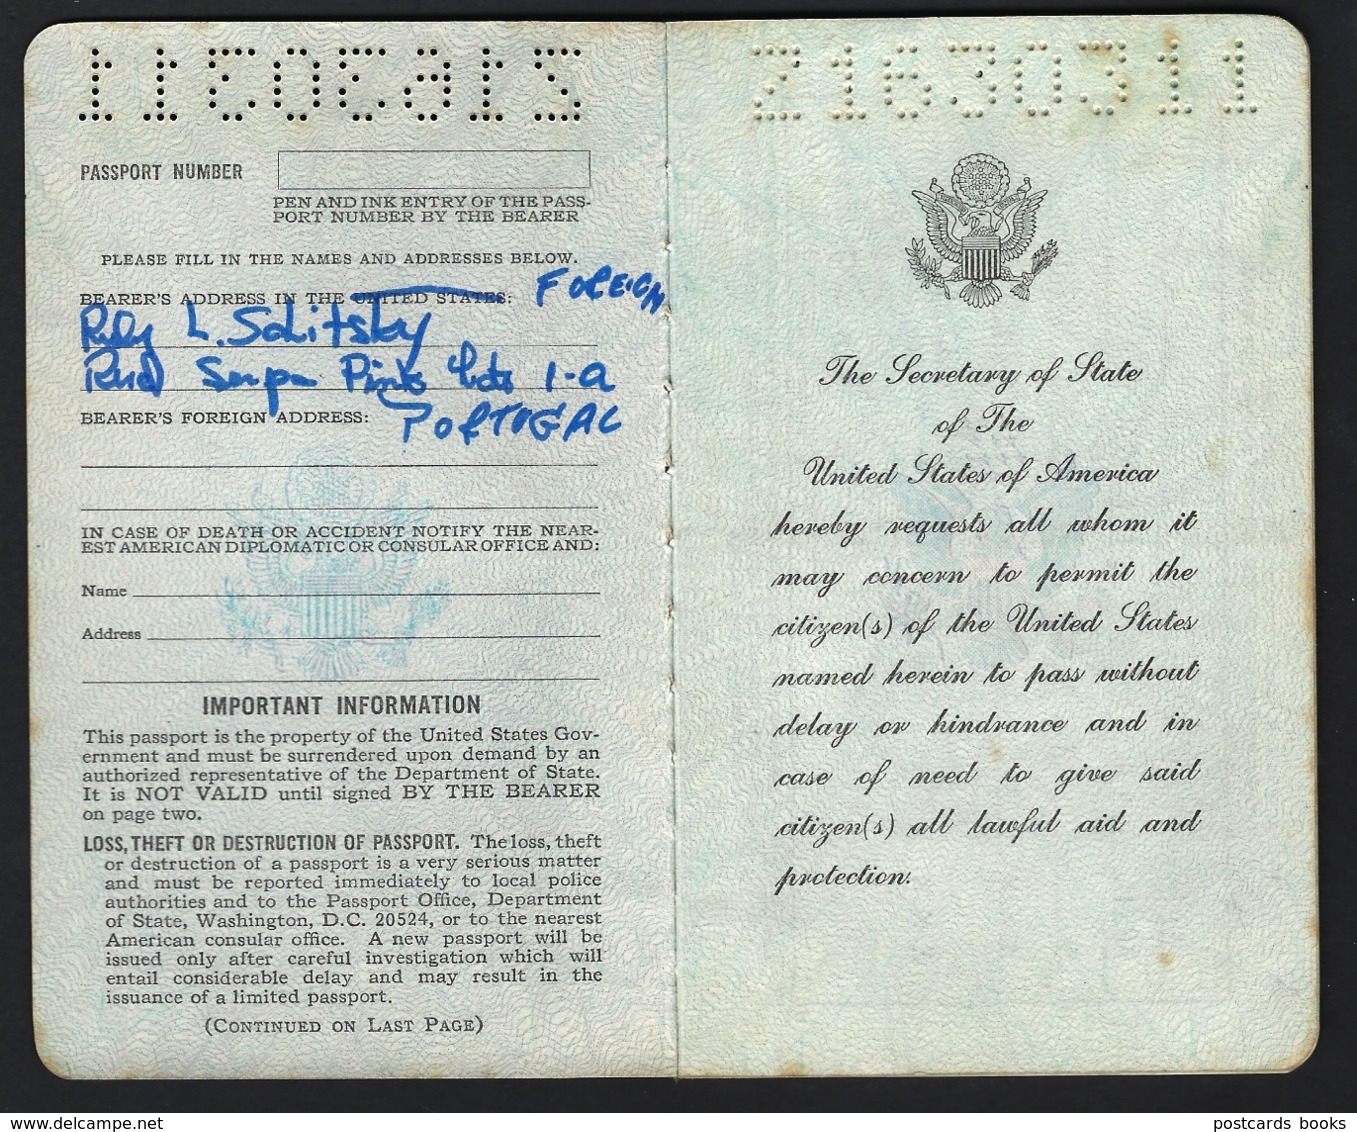 Z1630311
PASSPORT NUMBER
PEN AND INK ENTRY OF THE PASS-
PORT NUMBER BY THE BEARER
PLEASE FILL IN THE NAMES AND ADDRESSES BELOW.
BEARER'S ADDRESS IN THE UNITED STATES: FOREIGN
L. Solitsky
Serpa Pinto 1-a
BEARER'S FOREIGN ADDRESS: PORTUGAL
IN CASE OF DEATH OR ACCIDENT NOTIFY THE NEAR-
EST AMERICAN DIPLOMATIC OR CONSULAR OFFICE AND:
Name
Address
IMPORTANT INFORMATION
This passport is the property of the United States Gov-
ernment and must be surrendered upon demand by an
authorized representative of the Department of State.
It is NOT VALID until signed BY THE BEARER
on page two.
LOSS, THEFT OR DESTRUCTION OF PASSPORT. The loss, theft
or destruction of a passport is a very serious matter
and must be reported immediately to local police
authorities and to the Passport Office, Department
of State, Washington, D.C. 20524, or to the nearest
American consular office. A new passport will be
issued only after careful investigation which will
entail considerable delay and may result in the
issuance of a limited passport.
(CONTINUED ON LAST PAGE)
Z1630311
The Secretary of State
of The
United States of America
hereby requests all whom it
may concern to permit the
citizen(s) of the United States
named herein to pass without
delay or hindrance and in
case of need to give said
citizen(s) all lawful aid and
protection.
www.delcampe.net
postcards books